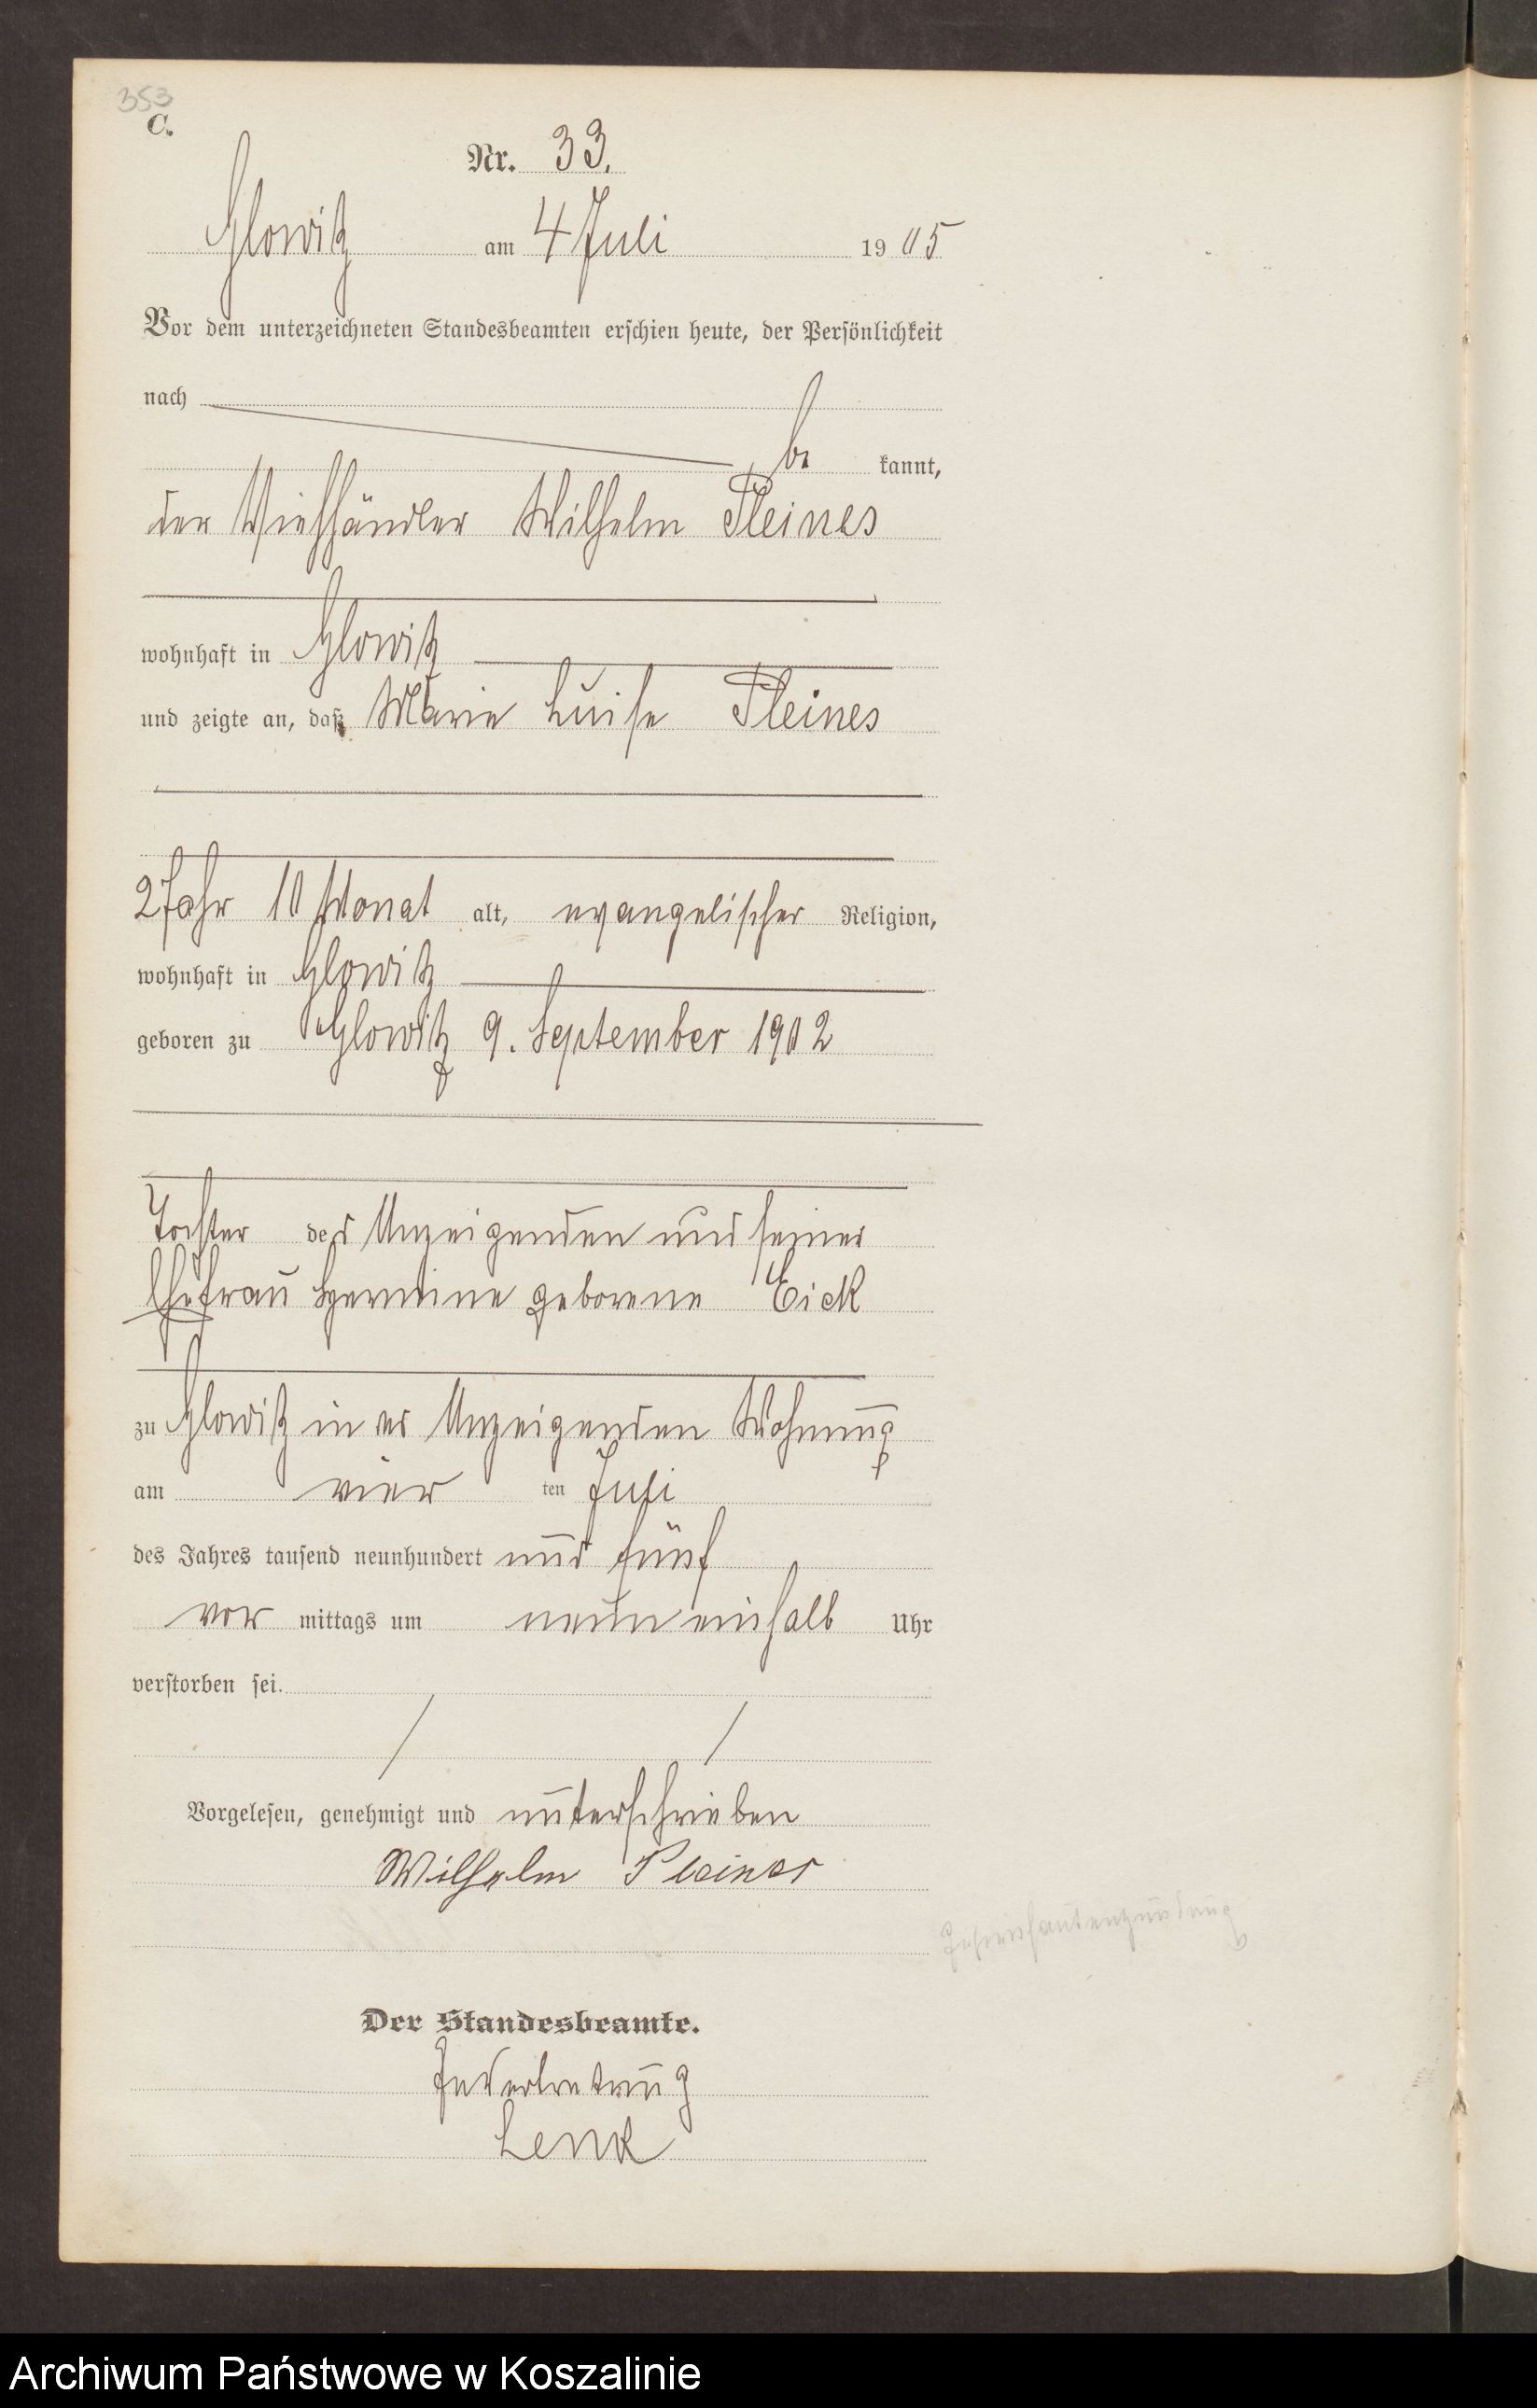 353
C.
Nr. 33.
Glowitz am 4 Juli 1905
Vor dem unterzeichneten Standesbeamten erschien heute, der Persönlichkeit
nach
be kannt,
der Viehhändler Wilhelm Pleines
wohnhaft in Glowitz
und zeigte an, daß Marie Luise Pleines
2 Jahr 10 Monat alt, evangelischer Religion,
wohnhaft in Glowitz
geboren zu Glowitz 9. September 1902
Tochter des Anzeigenden und seiner
Ehefrau Hermine geborene Eick
zu Glowitz in des Anzeigenden Wohnung
am vier ten Juli
des Jahres tausend neunhundert und fünf
vor mittags um neun einhalb Uhr
verstorben sei.
Vorgelesen, genehmigt und unterschrieben
Wilhelm Pleines
Gehirnhautentzündung
Der Standesbeamte.
In Vertretung
Lenk
Archiwum Państwowe w Koszalinie